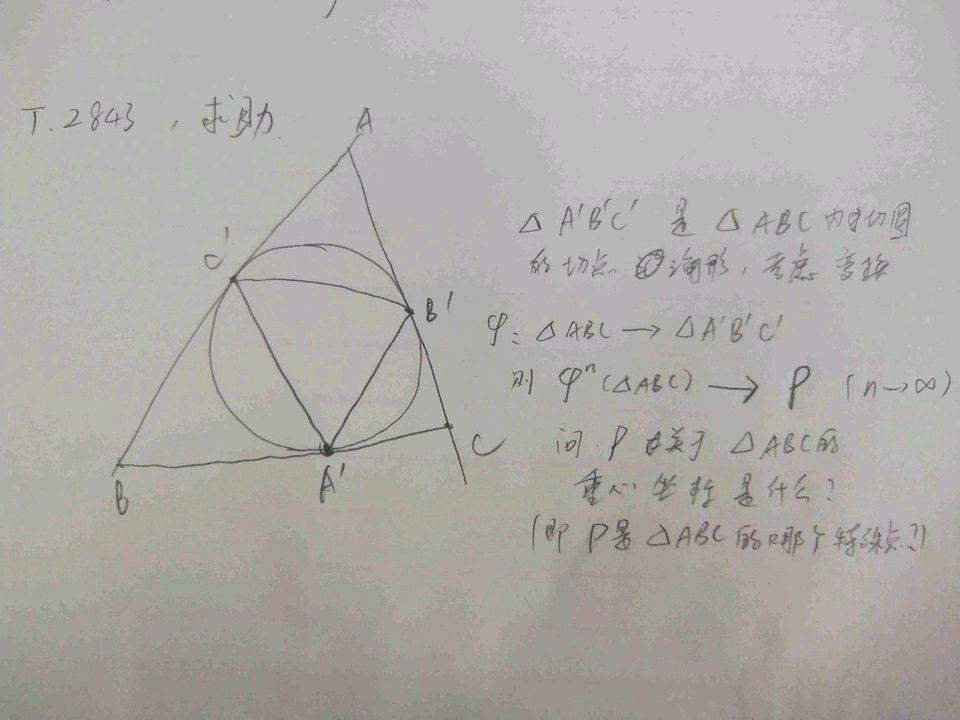 T.2843，求助.
A
C'
B'
B
A'
C
△A'B'C' 是 △ABC 内切圆
的切点三角形，考虑变换
φ: △ABC → △A'B'C'
则 φⁿ(△ABC) → P (n→∞)
问 P 关于 △ABC的
重心坐标是什么?
(即 P是△ABC的哪个特殊点?)